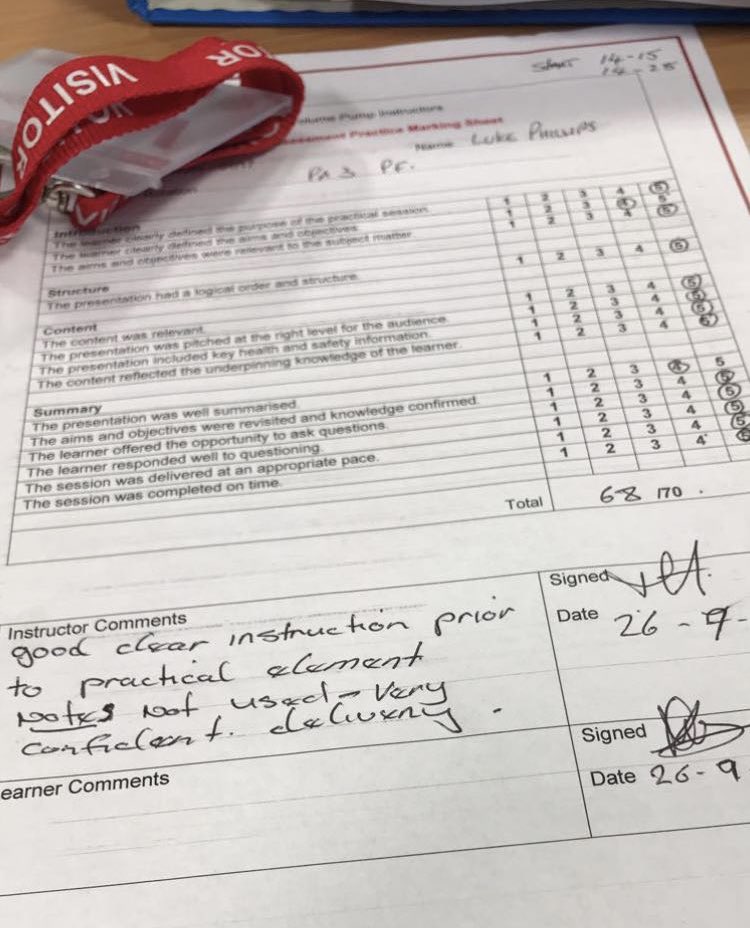 VISITOR
VISITOR
Start 14-15
14-25
Volume Pump Instructors
Assessment Practice Marking Sheet
Name LUKE PHILLIPS
PA 3 PE.
Introduction
The learner clearly defined the purpose of the practical session. 1 2 3 4 5
The learner clearly defined the aims and objectives. 1 2 3 4 5
The aims and objectives were relevant to the subject matter. 1 2 3 4 5
Structure
The presentation had a logical order and structure. 1 2 3 4 5
Content
The content was relevant. 1 2 3 4 5
The presentation was pitched at the right level for the audience. 1 2 3 4 5
The presentation included key health and safety information. 1 2 3 4 5
The content reflected the underpinning knowledge of the learner. 1 2 3 4 5
Summary
The presentation was well summarised. 1 2 3 4 5
The aims and objectives were revisited and knowledge confirmed. 1 2 3 4 5
The learner offered the opportunity to ask questions. 1 2 3 4 5
The learner responded well to questioning. 1 2 3 4 5
The session was delivered at an appropriate pace. 1 2 3 4 5
The session was completed on time. 1 2 3 4 5
Total 68 /70.
Instructor Comments
good clear instruction prior
to practical element
Notes Not used - Very
confident. delivery.
Signed
Date 26-9-
earner Comments
Signed
Date 26-9